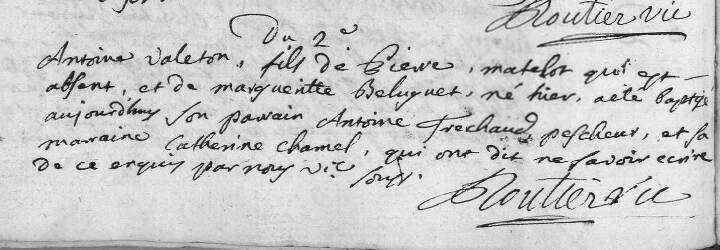 Routier vic
Du 2e
Antoine Valeton, fils de Pierre, matelot qui est
absent, et de margueritte Beluguet, né hier, a été baptisé
aujourdhuy son parrain Antoine Trechaud pescheur, et sa
marraine Catherine Chamel, qui ont dit ne savoir ecrire
de ce enquis par nous vic. souss.
Routier vic